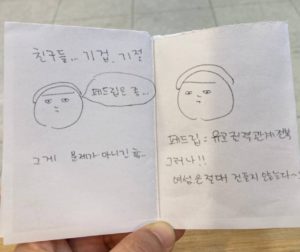 친구들... 기겁, 기절
패드립은 좀...
그게 문제가 아니긴 함..
패드립: 유교 권력 관계 전복
그러나!!
여성은 절대 건들지 않는다~